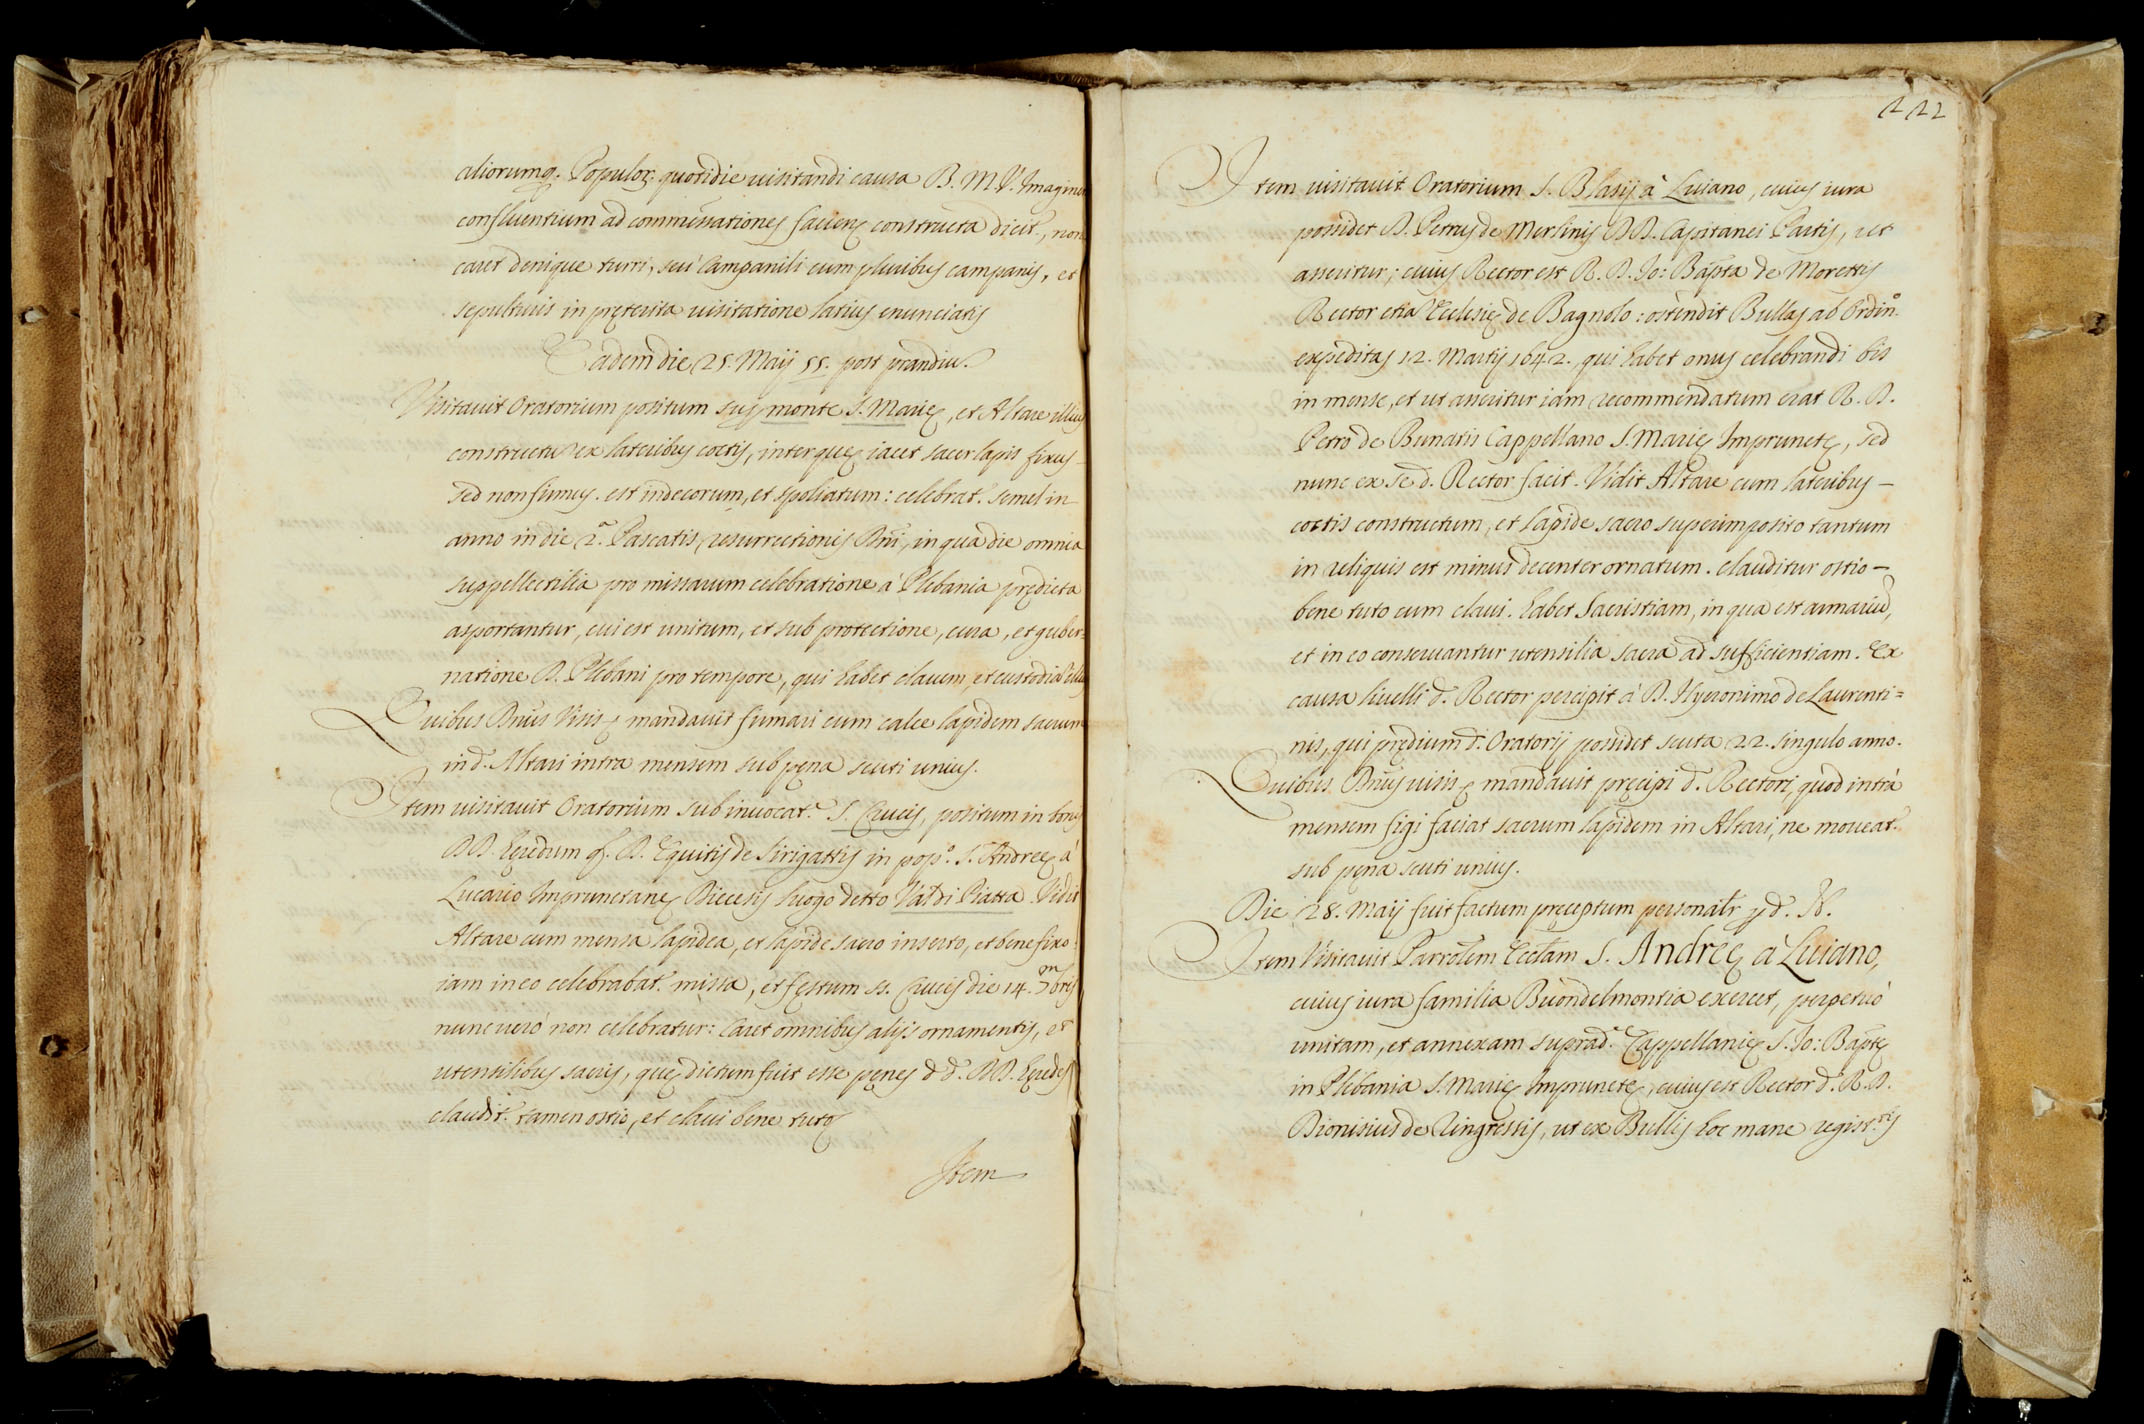 aliorumq. Populor: quotidie visitandi causa B. M. V. Imaginem
confluentium ad commessationes faciens constructa dicit., non
caret denique turri, seu Campanili cum pluribus campanis, et
sepulturis in pręterita visitatione latius enunciatis
Eadem die 25. Maij 55. post prandiu.
Visitavit Oratorium positum sup monte S. Marię, et Altare illius
constructu ex lateribus coctis, inter quę iacet sacer lapis fixus
sed non firmus. est indecorum, et spoliatum: celebrat. semel in
anno in die 2.ª Pascatis resurrectionis Dni, in qua die omnia
suppellectilia pro missarum celebratione à Plebania prędicta
asportantur, cui est unitum, et sub protectione, cura, et guber=
natione D. Plebani pro tempore, qui habet clavem, et custodia illius
Quibus Dnus Visis mandavit firmari cum calce lapidem sacrum
in d. Altari intra mensem sub pęna scuti unius.
Item visitavit Oratorium sub invocat.e S. Crucis, positum in bonis
DD. Hęredum q. D. Equitis de Sirigattis in pop.o S. Andreę à
Lucario Imprunetanę Diecesis luogo detto Val di Piatta. Vidit
Altare cum mensa lapidea, et lapide sacro inserto, et bene fixo
iam in eo celebrabat. missa, et fęstum SS. Crucis die 14. 7bris
nunc verò non celebratur: Caret omnibus alijs ornamentis, et
utensilibus sacris, quę dictum fuit esse pęnes d d. DD. Hęredes
claudit. tamen ostio, et clavi bene tuto
Item
222
Item visitavit Oratorium S. Blasij à Luiano, cuius iura
possidet D. Petrus de Merlinis DD. Capitanei Partis, ut
asseritur; cuius Rector est R. D. Jo: Bapta de Morettis
Rector etia Ecclesię de Bagnolo: ostendit Bullas ab Ordin.o
expeditas 12. Martij 1642. qui habet onus celebrandi bis
in mense, et ut asseritur iam recommendatum erat R. D.
Petro de Bunatis Cappellano S. Marię Imprunetę, sed
nunc ex se d. Rector facit. Vidit Altare cum lateribus –
coctis constructum, et lapide sacro superimposito tantum
in reliquis est minus decenter ornatum. clauditur ostio –
bene tuto cum clavi. habet Sacristiam, in qua est armariu,
et in eo conservantur utensilia sacra ad sufficientiam. Ex
causa livelli d. Rector percipit à D. Hyeronimo de Laurenti=
nis, qui prędium d. Oratorij possidet scuta 22. singulo anno.
Quibus Dnus visis mandavit pręcipi d. Rectori, quòd intrà
mensem figi faciat sacrum lapidem in Altari, ne moveat.
sub pęna scuti unius.
Die 28. Maij fuit factum pręceptum personalr p d. N.
Item Visitavit Parrolem Ecclam S. Andreę à Luiano,
cuius iura familia Buondelmontia exercet, perpetuò
unitam, et annexam suprad.e Cappellanię S. Jo: Baptę
in Plebania S. Marię Imprunetę, cuius est Rector d. R. D.
Dionisius de Ringressis, ut ex Bullis hoc mane regist.tis